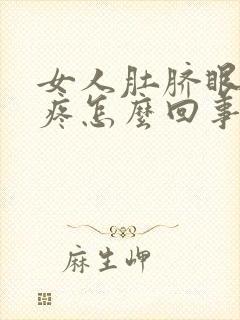 女人肚脐眼
疼怎麼回事
麻生岬